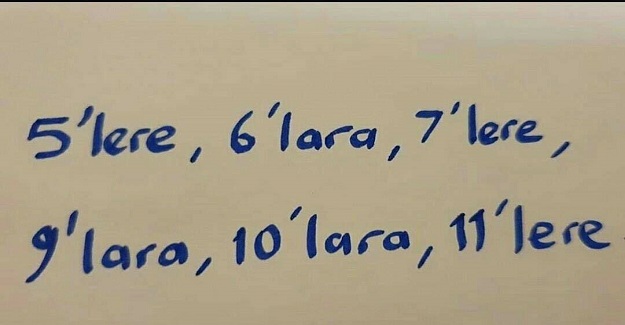 5'lere, 6'lara, 7'lere,
9'lara, 10'lara, 11'lere